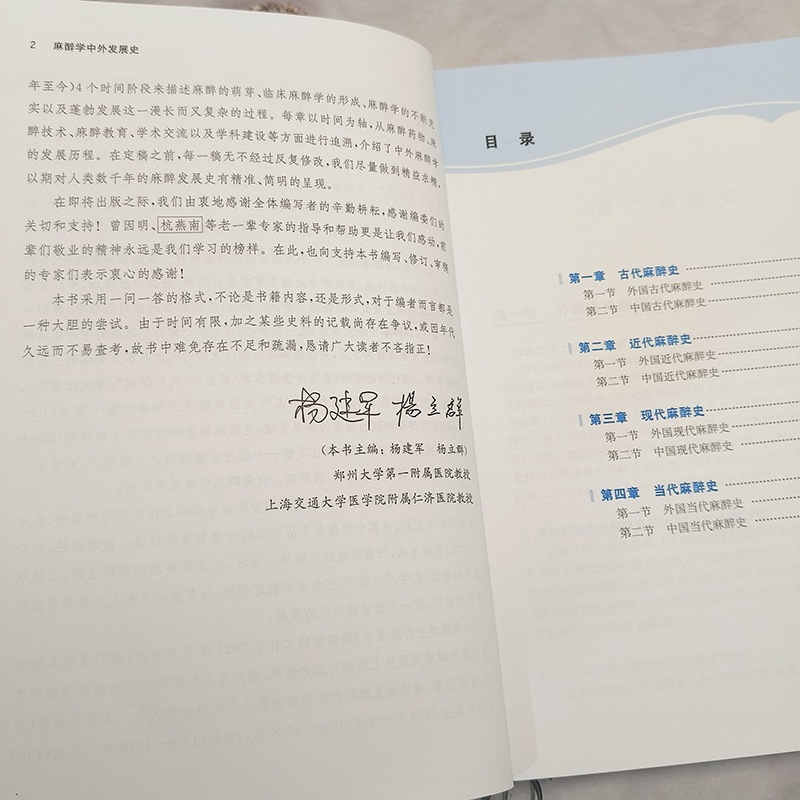 2 麻醉学中外发展史
年至今)4 个时间阶段来描述麻醉的萌芽、临床麻醉学的形成、麻醉学的不断充
实以及蓬勃发展这一漫长而又复杂的过程。每章以时间为轴,从麻醉药物、麻
醉技术、麻醉教育、学术交流以及学科建设等方面进行追溯,介绍了中外麻醉学
的发展历程。在定稿之前,每一稿无不经过反复修改,我们尽量做到精益求精,
以期对人类数千年的麻醉发展史有精准、简明的呈现。
在即将出版之际,我们由衷地感谢全体编写者的辛勤耕耘,感谢编委们的
关切和支持!曾因明、杭燕南等老一辈专家的指导和帮助更是让我们感动,前
辈们敬业的精神永远是我们学习的榜样。在此,也向支持本书编写、修订、审稿
的专家们表示衷心的感谢!
本书采用一问一答的格式,不论是书籍内容,还是形式,对于编者而言都是
一种大胆的尝试。由于时间有限,加之某些史料的记载尚存在争议,或因年代
久远而不易查考,故书中难免存在不足和疏漏,恳请广大读者不吝指正!
杨建军 楊立群
(本书主编:杨建军 杨立群)
郑州大学第一附属医院教授
上海交通大学医学院附属仁济医院教授
目 录
第一章 古代麻醉史
第一节 外国古代麻醉史
第二节 中国古代麻醉史
第二章 近代麻醉史
第一节 外国近代麻醉史
第二节 中国近代麻醉史
第三章 现代麻醉史
第一节 外国现代麻醉史
第二节 中国现代麻醉史
第四章 当代麻醉史
第一节 外国当代麻醉史
第二节 中国当代麻醉史